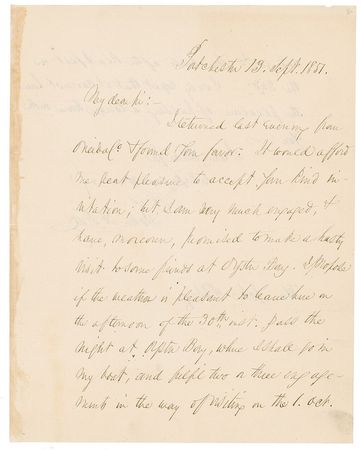 Fatchester 13. Sept. 1851.
My dear Sir:—
I returned last evening from
Oneida Co. & found your favor. It would afford
me great pleasure to accept your kind in-
vitation; but I am very much engaged, &
have, moreover, promised to make a hasty
visit to some friends at Oyster Bay. I propose
if the weather is pleasant to leave here on
the afternoon of the 30th inst. pass the
night at Oyster Bay, where I shall go in
my boat, and fulfil two or three engage-
ments in the way of visiting on the 1. Oct.